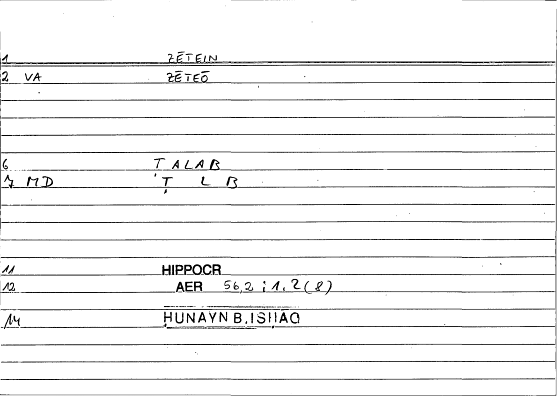 1 ZĒTEIN
2 VA ZĒTEŌ
6 ṬALAB
7 MD Ṭ L B
11 HIPPOCR
12 AER 56,2 ; 1,2(8)
14 ḤUNAYN B. ISḤAQ